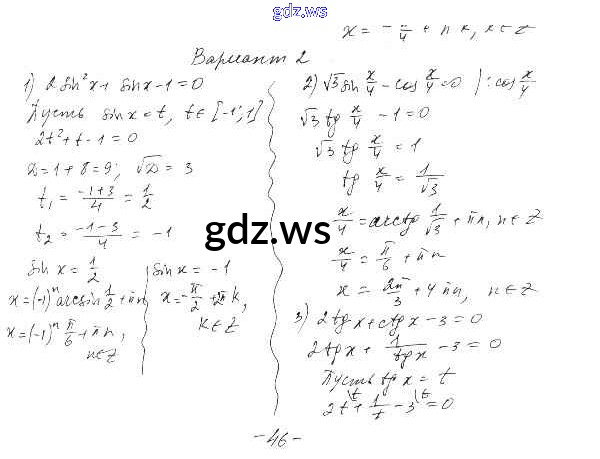 gdz.ws
x = -π/4 + πk, k∈Z
Вариант 2
1) 2sin²x + sinx - 1 = 0
Пусть sinx = t, t∈[-1; 1]
2t² + t - 1 = 0
D = 1 + 8 = 9; √D = 3
t₁ = (-1+3)/4 = 1/2
t₂ = (-1-3)/4 = -1
sin x = 1/2
x = (-1)ⁿ arcsin 1/2 + πn
x = (-1)ⁿ π/6 + πn,
n∈Z
sin x = -1
x = -π/2 + 2πk,
k∈Z
2) √3 sin x/4 - cos x/4 = 0 | : cos x/4
√3 tg x/4 - 1 = 0
√3 tg x/4 = 1
tg x/4 = 1/√3
x/4 = arctg 1/√3 + πn, n∈Z
x/4 = π/6 + πn
x = 2π/3 + 4πn, n∈Z
3) 2tgx + ctgx - 3 = 0
2tgx + 1/tgx - 3 = 0
Пусть tgx = t
2t\t + 1/t - 3\t = 0
gdz.ws
-46-